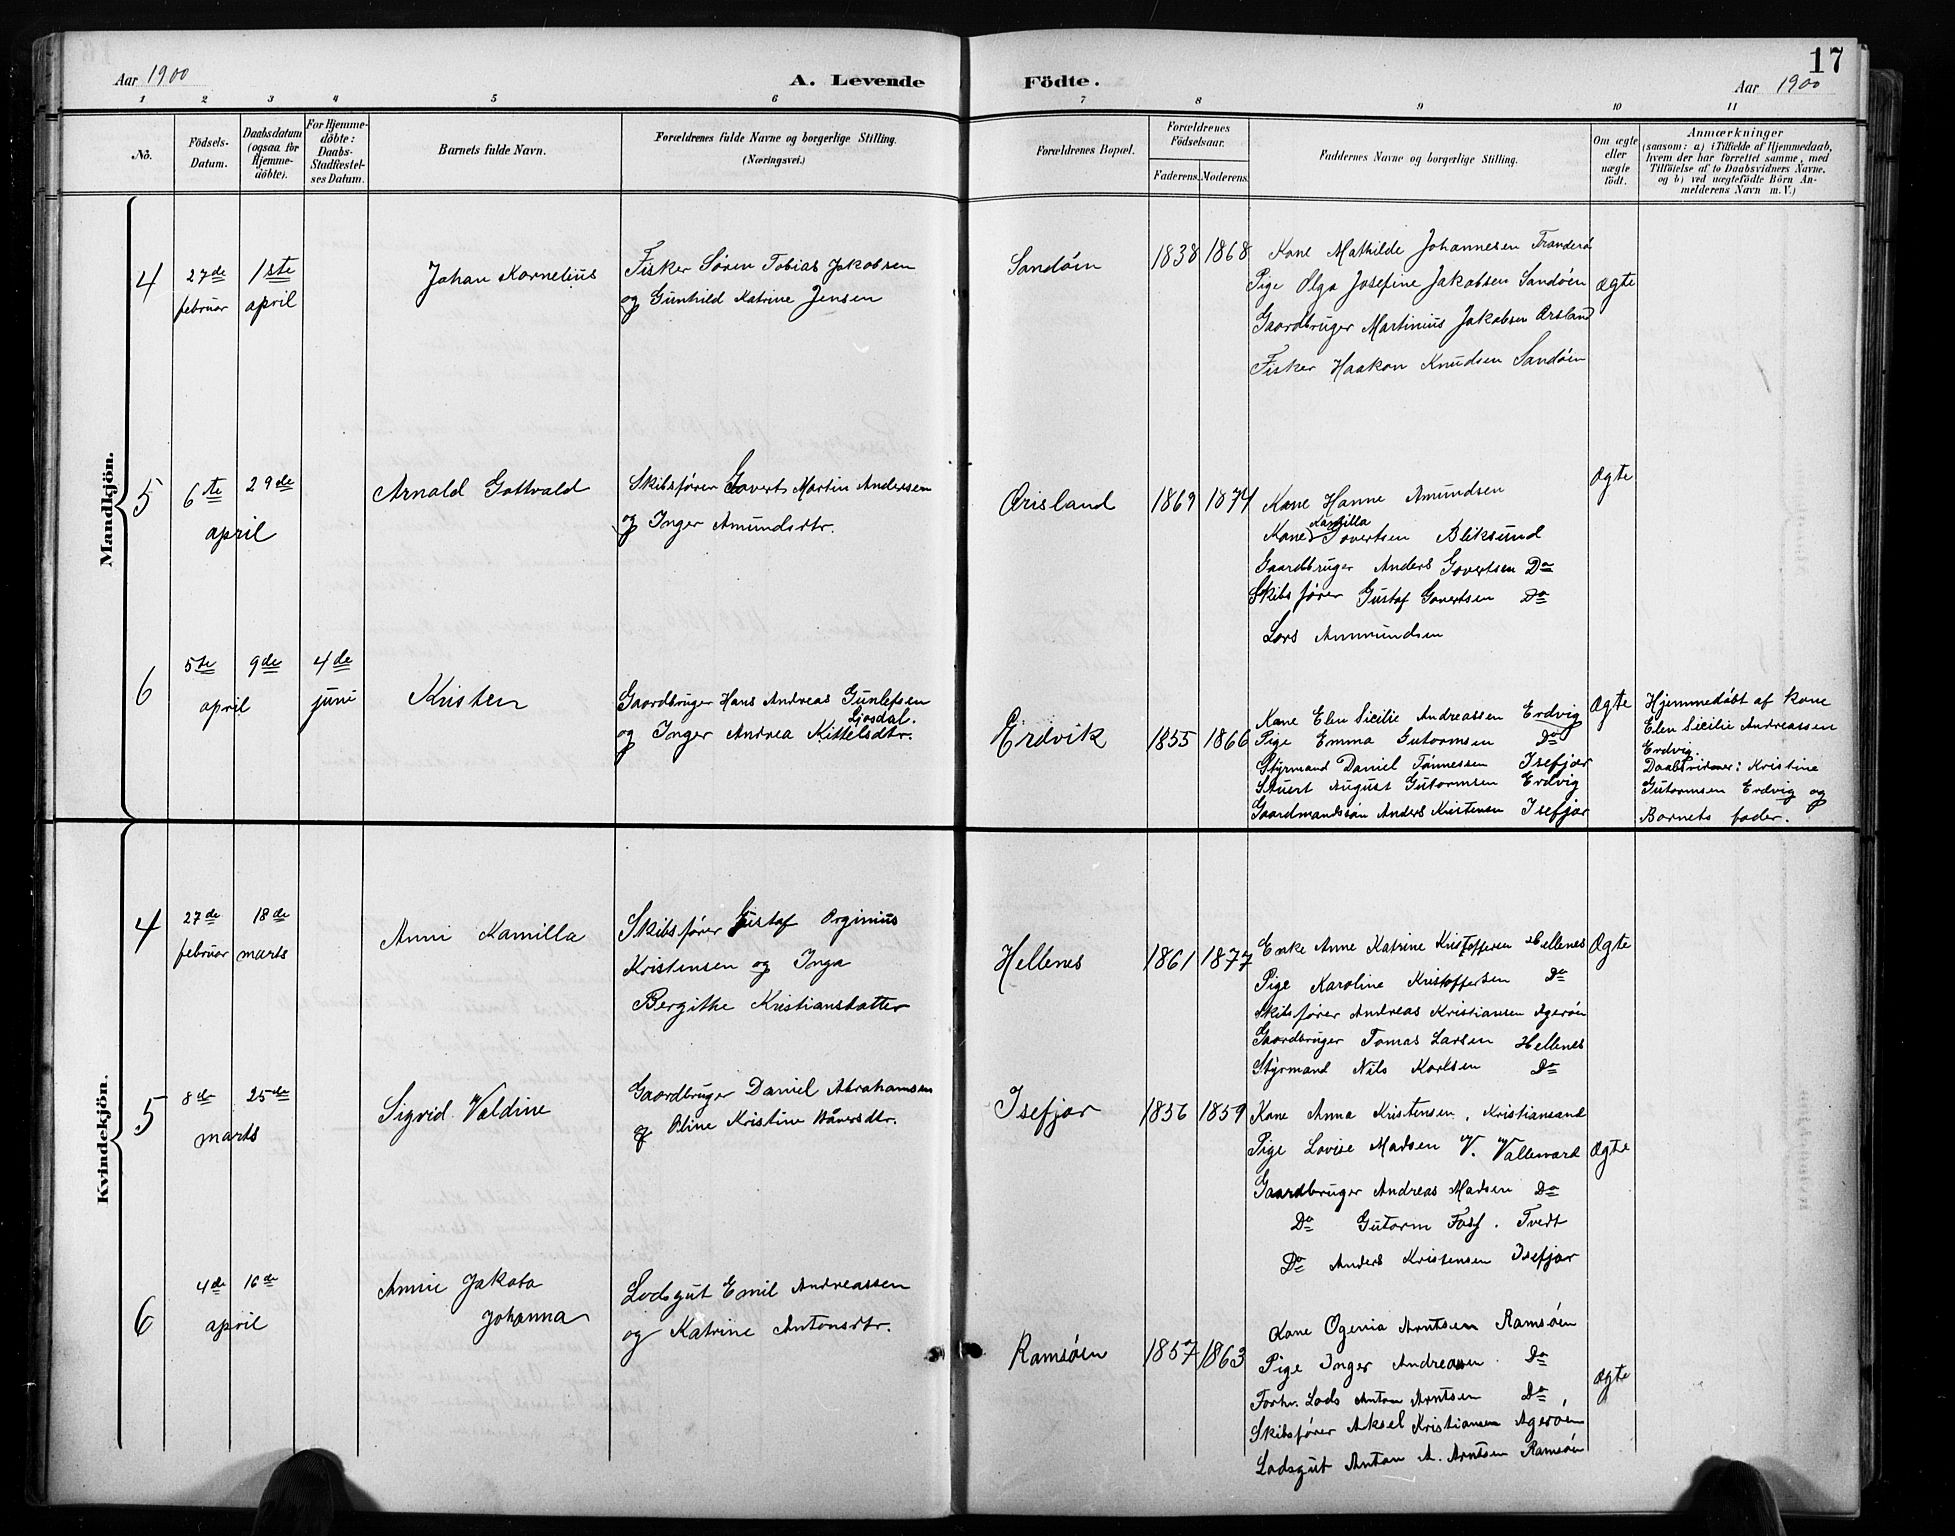 17
Aar 1900
A. Levende Födte.
Aar 1900
1 2 3 4 5 6 7 8 9 10 11
No.
Födsels-Datum.
Daabsdatum
(ogsaa for
Hjemme-
döbte).
For Hjemme-
döbte:
Daabs-
Stadfæstel-
ses Datum.
Barnets fulde Navn.
Forældrenes fulde Navne og borgerlige Stilling.
(Næringsvei.)
Forældrenes Bopæl.
Forældrenes
Födselsaar.
Faderens. Moderens.
Faddernes Navne og borgerlige Stilling.
Om ægte
eller
uægte
födt.
Anmærkninger
(saasom: a) i Tilfælde af Hjemmedaab,
hvem der har forrettet samme, med
Tilföielse af to Daabsvidners Navne,
og b) ved uægtefödte Börn An-
melderens Navn m. V.)
Mandkjön.
4
27de
februar
1ste
april
Johan Kornelius
Fisker Sören Tobias Jakobsen
og Gunhild Katrine Jensen
Sandöen
1838 1868
Kone Mathilde Johannesen Tranderö
Pige Olga Josefine Jakobsen Sandöen
Gaardbruger Martinius Jakobsen Örsland
Fisker Haakon Knudsen Sandöen
Ægte
5
6te 29de
april
Arnold Gottvald
Skibsförer Govert Martin Andersen
og Inger Amundsdtr.
Örisland
1869 1874
Kone Hanne Amundsen
Kamilla
Kone Govertsen Bliksund
Gaardbruger Anders Govertsen Do
Skibsförer Gustaf Govertsen Do
Lars Ammundsen
Ægte
6
5te 9de
april
4de
juni
Kristen
Gaardbruger Hans Andreas Gunlefsen
Ljosdal.
og Inger Andrea Kittelsdtr.
Erdvik
1855 1866
Kone Elen Sicilie Andreassen Erdvig
Pige Emma Gutormsen Do
Styrmand Daniel Tönnessen Isefjær
Stuert August Gutormsen Erdvig
Gaardmandssön Anders Kristensen Isefjær
Ægte
Hjemmedöbt af kone
Elen Sicilie Andreassen
Erdvig.
Daabsvidner: Kristine
Gutormsen Erdvig og
Barnets fader.
Kvindekjön.
4
27de
februar
18de
marts
Anni Kamilla
Skibsförer Gustaf Orginius
Kristensen og Inga
Bergithe Kristiansdatter
Hellenes
1861 1877
Enke Anne Katrine Kristoffersen Hellenes
Pige Karoline Kristoffersen Do
Skibsförer Andreas Kristiansen Ageröen
Gaardbruger Tomas Larsen Hellenes
Styrmand Nils Karlsen Do
Ægte
5
8de 25de
marts
Sigvid Valdine
Gaardbruger Daniel Abrahamsen
og Oline Kristine Håversdtr.
Isefjær
1856 1859
Kone Anna Kristensen, Kristiansand
Pige Lovise Madsen V. Vallevard
Gaardbruger Andreas Madsen Do
Do Gutorm Tvedt
Do Anders Kristensen Isefjær
Ægte
6
4de 16de
april
Annie Jakoba
Johanna
Lodsgut Emil Andreassen
og Katrine Antonsdtr.
Ramsöen
1857 1863
Kone Ogenia Arntsen Ramsöen
Pige Inger Andreasen Do
Forhv. Lods Anton Arntsen Do
Skibsförer Aksel Kristiansen Ageröen
Lodsgut Anton A. Arntsen Ramsöen
Ægte